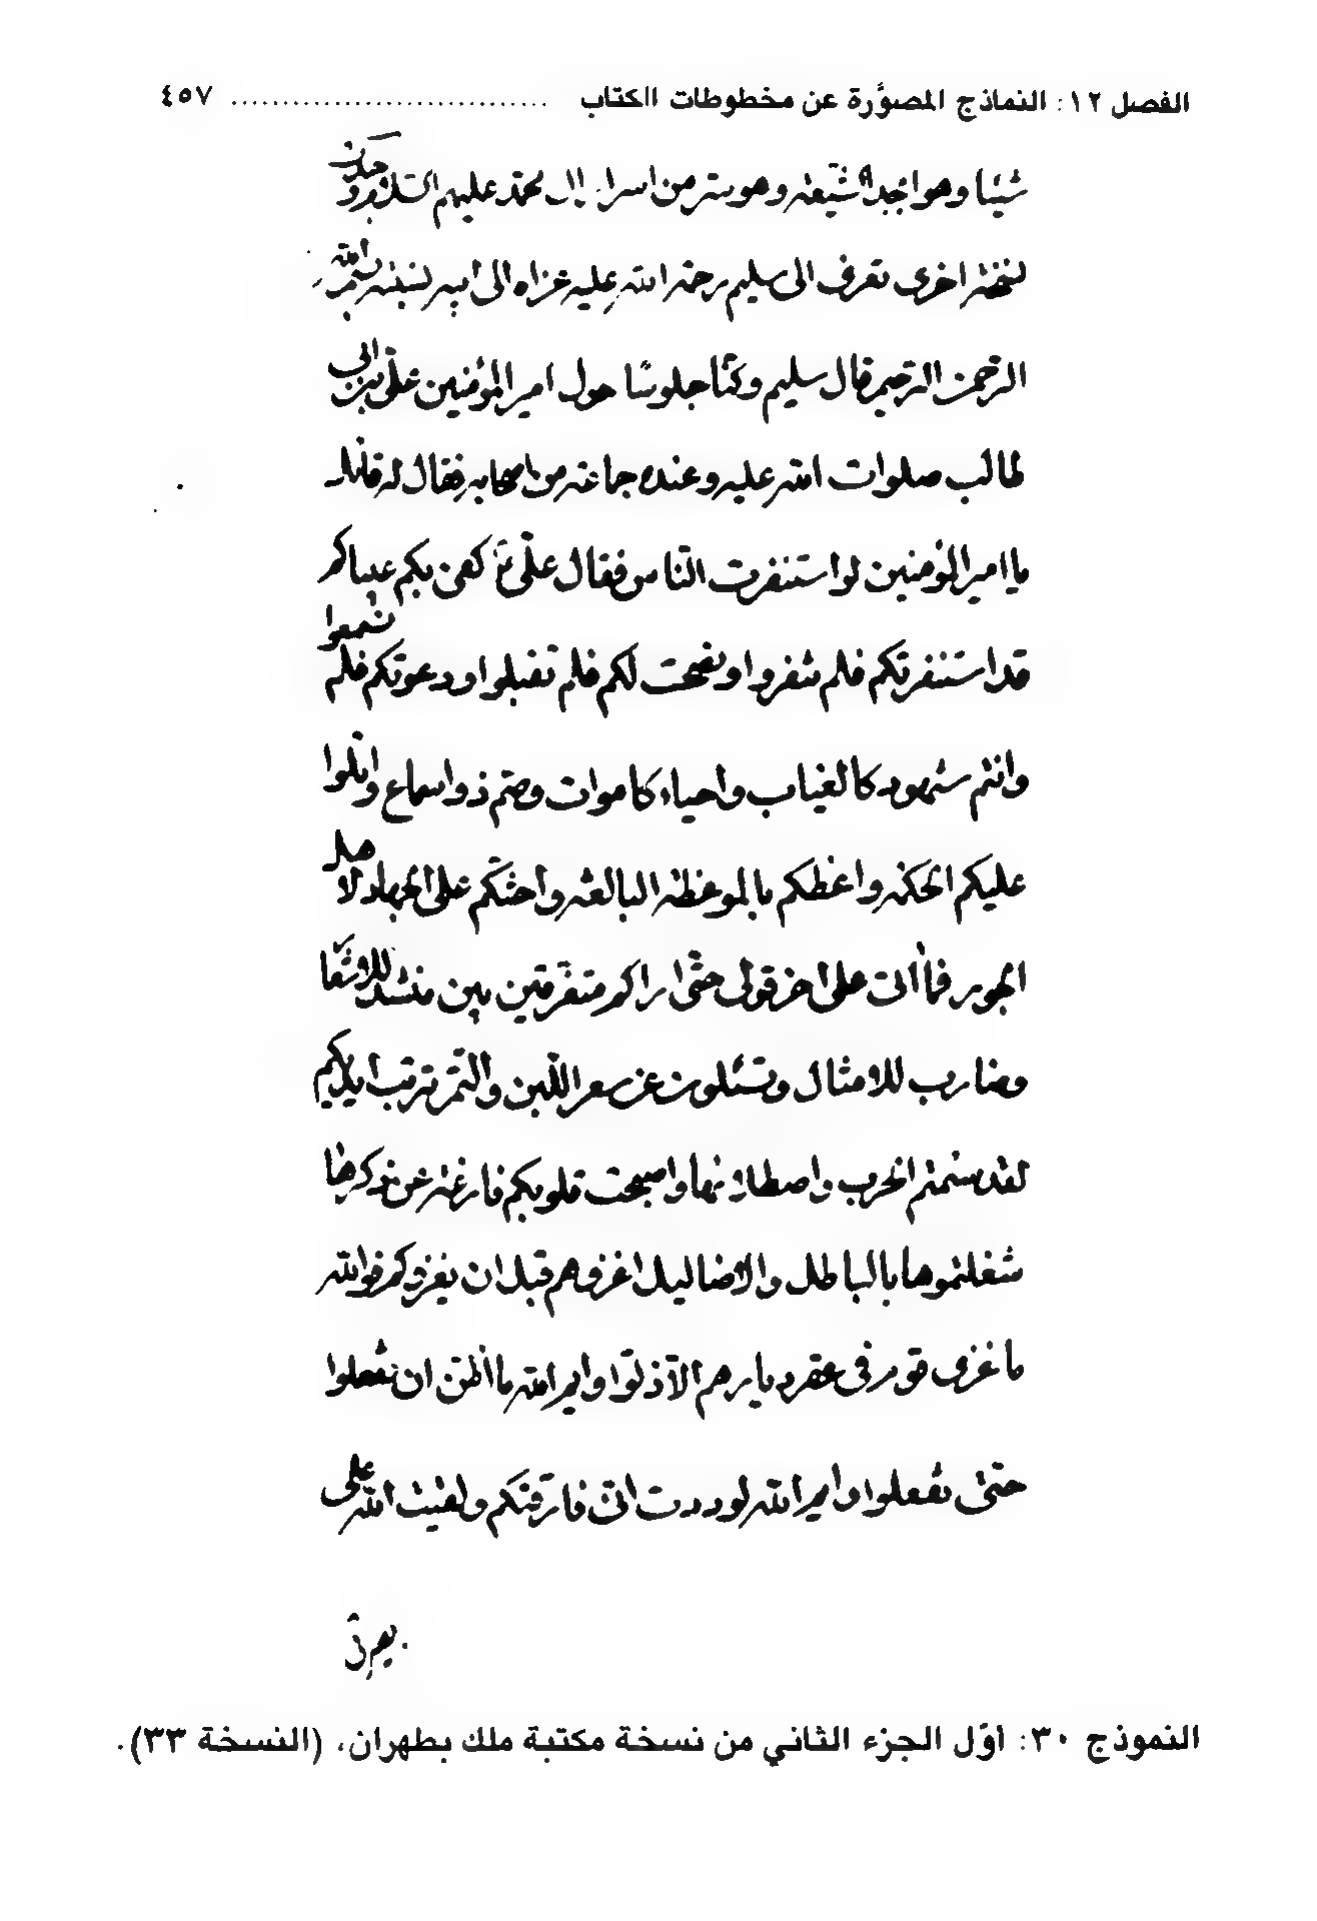 الفصل ١٢: النماذج المصوَّرة عن مخطوطات الكتاب .............................. ٤٥٧
شيئا وهو ابجد الشيعه وهو سر من اسرار ال محمد عليهم السلام
نسخة اخرى تعرف الى سليم رحمة الله عليه عزاه الى ابيه لنسبته بسم الله
الرحمن الرحيم قال سليم وكنّا جلوسًا حول امير المؤمنين علىّ بن ابى
طالب صلوات الله عليه وعنده جماعة من اصحابه فقال له قائل
يا امير المؤمنين لو استنفرت الناس فقال علىّ ع
قد استنفرتكم فلم تنفروا ونصحت لكم فلم تقبلوا ودعوتكم فلم تسمعوا
وانتم شهود كالغياب واحياء كاموات وصمّ ذو اسماع واتلوا
عليكم الحكمة واعظكم بالموعظة البالغة واحثّكم على الجهاد لاهل
الجور فما اتى على اخر قولى حتّى اراكم متفرّقين بين منشد للاشعار
وضارب للامثال وتسئلون عن سعر اللبن والتمر تربت ايديكم
لقد سئمتم الحرب واصطلاء نارها واصبحت قلوبكم فارغة عن ذكرها
شغلتموها بالباطل والاضاليل اغزوهم قبل ان يغزوكم فوالله
ما غزى قوم فى عقر ديارهم الاّ ذلّوا وايم الله ما اظنّ ان تفعلوا
حتى تفعلوا وايم الله لوددت انّى فارقتكم ولقيت الله على
النموذج ٣٠: أوّل الجزء الثاني من نسخة مكتبة ملك بطهران، (النسخة ٣٣).